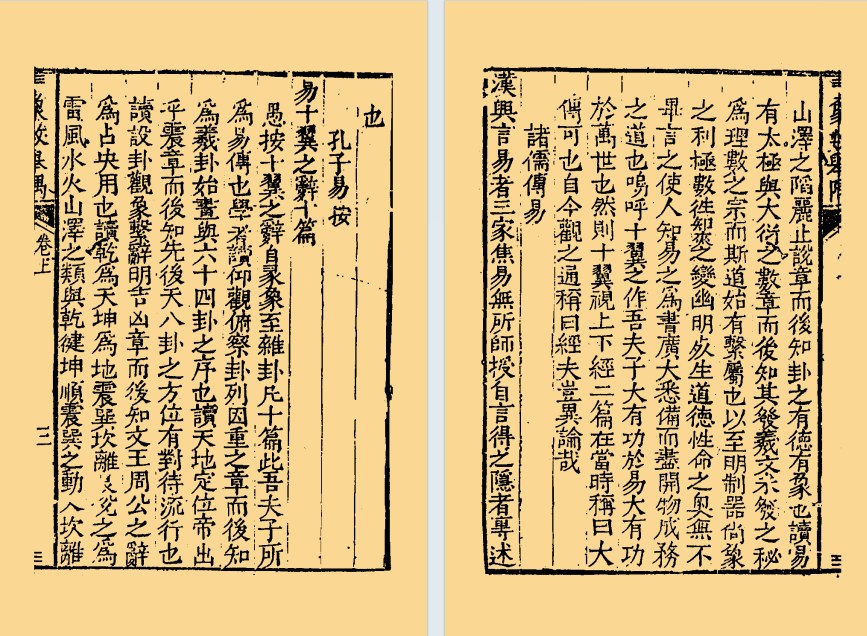 也
孔子易按
易十翼之辭十篇
愚按十翼之辭自彖象至雜卦凡十篇此吾夫子所
爲易傳也學者讀仰觀俯察卦列因重之章而後知
爲羲卦始畫與六十四卦之序也讀天地定位帝出
乎震章而後知先後天八卦之方位有對待流行也
讀設卦觀象繫辭明吉凶章而後知文王周公之辭
爲占决用也讀乾爲天坤爲地震巽坎離艮兌之爲
雷風水火山澤之類與乾健坤順震巽之動入坎離
象數舉隅 卷上 三
山澤之陷麗止說章而後知卦之有德有象也讀易
有太極與大衍之數章而後知其發羲文未發之秘
爲理數之宗而斯道始有繫屬也以至明制器尚象
之利極數徃知來之變幽明死生道德性命之奥無不
畢言之使人知易之爲書廣大悉備而盡開物成務
之道也嗚呼十翼之作吾夫子大有功於易大有功
於萬世也然則十翼視上下經二篇在當時稱曰大
傳可也自今觀之通稱曰經夫豈異論哉
諸儒傳易
漢興言易者三家焦易無所師授自言得之隱者專述